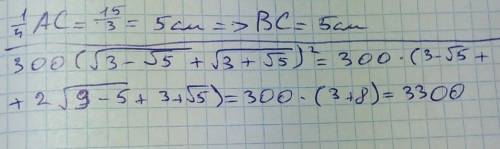 1/4 AC = 15/3 = 5 см => BC = 5 см
300(√(3-√5) + √(3+√5))² = 300 · (3-√5 +
+ 2√(9-5) + 3+√5) = 300 · (3+8) = 3300